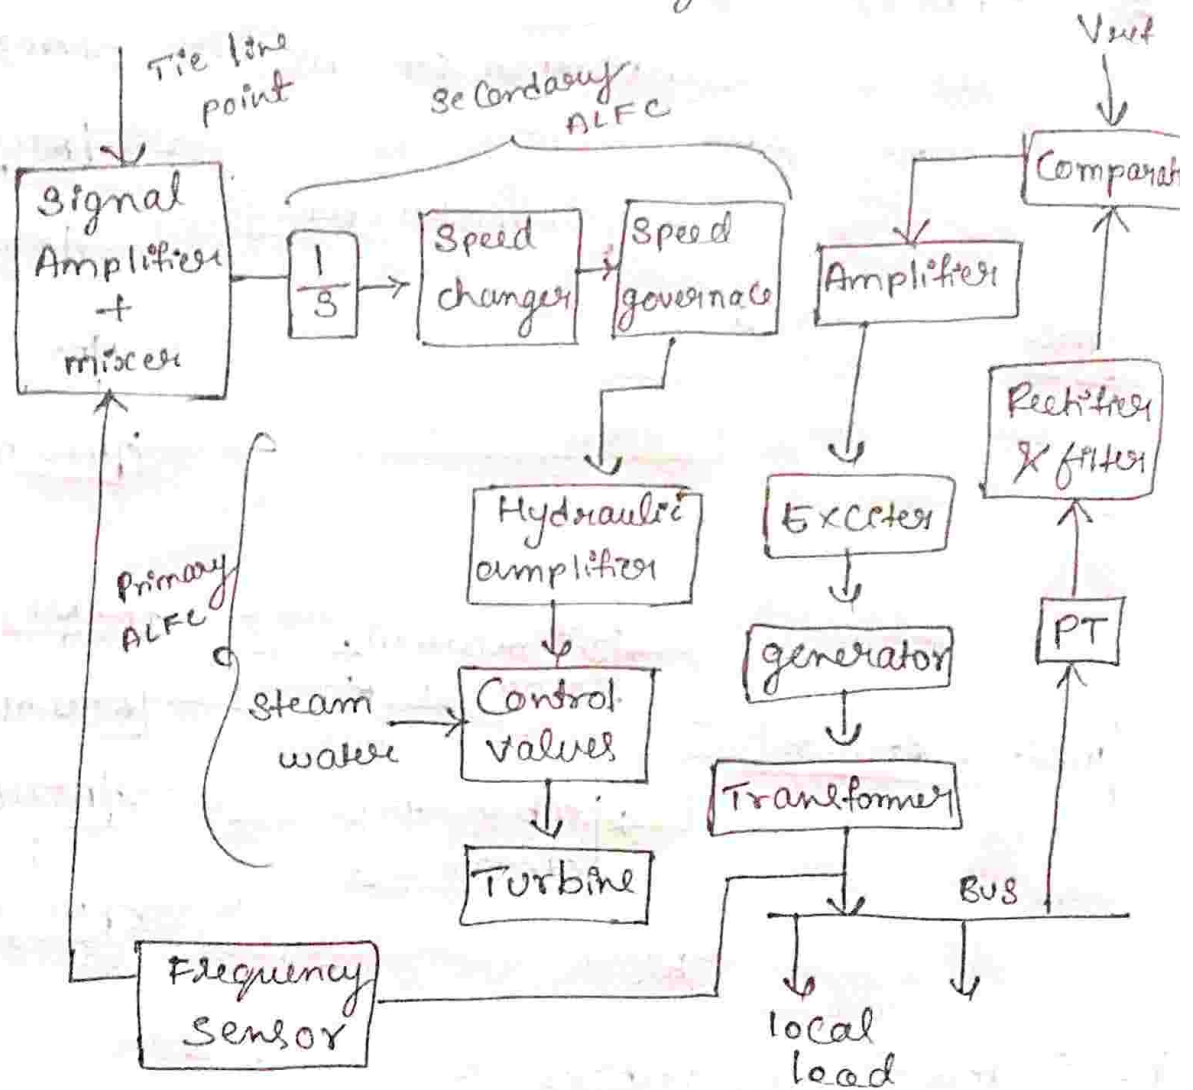 Tie line
point
Secondary
ALFC
Vref
Signal
Amplifier
+
mixer
1
S
Speed
changer
Speed
governace
Comparat
Amplifier
Rectifier
& filter
Primary
ALFC
Hydraulic
amplifier
Exciter
PT
generator
Steam
water
Control
valves
Transformer
Turbine
BUS
Frequency
Sensor
local
load